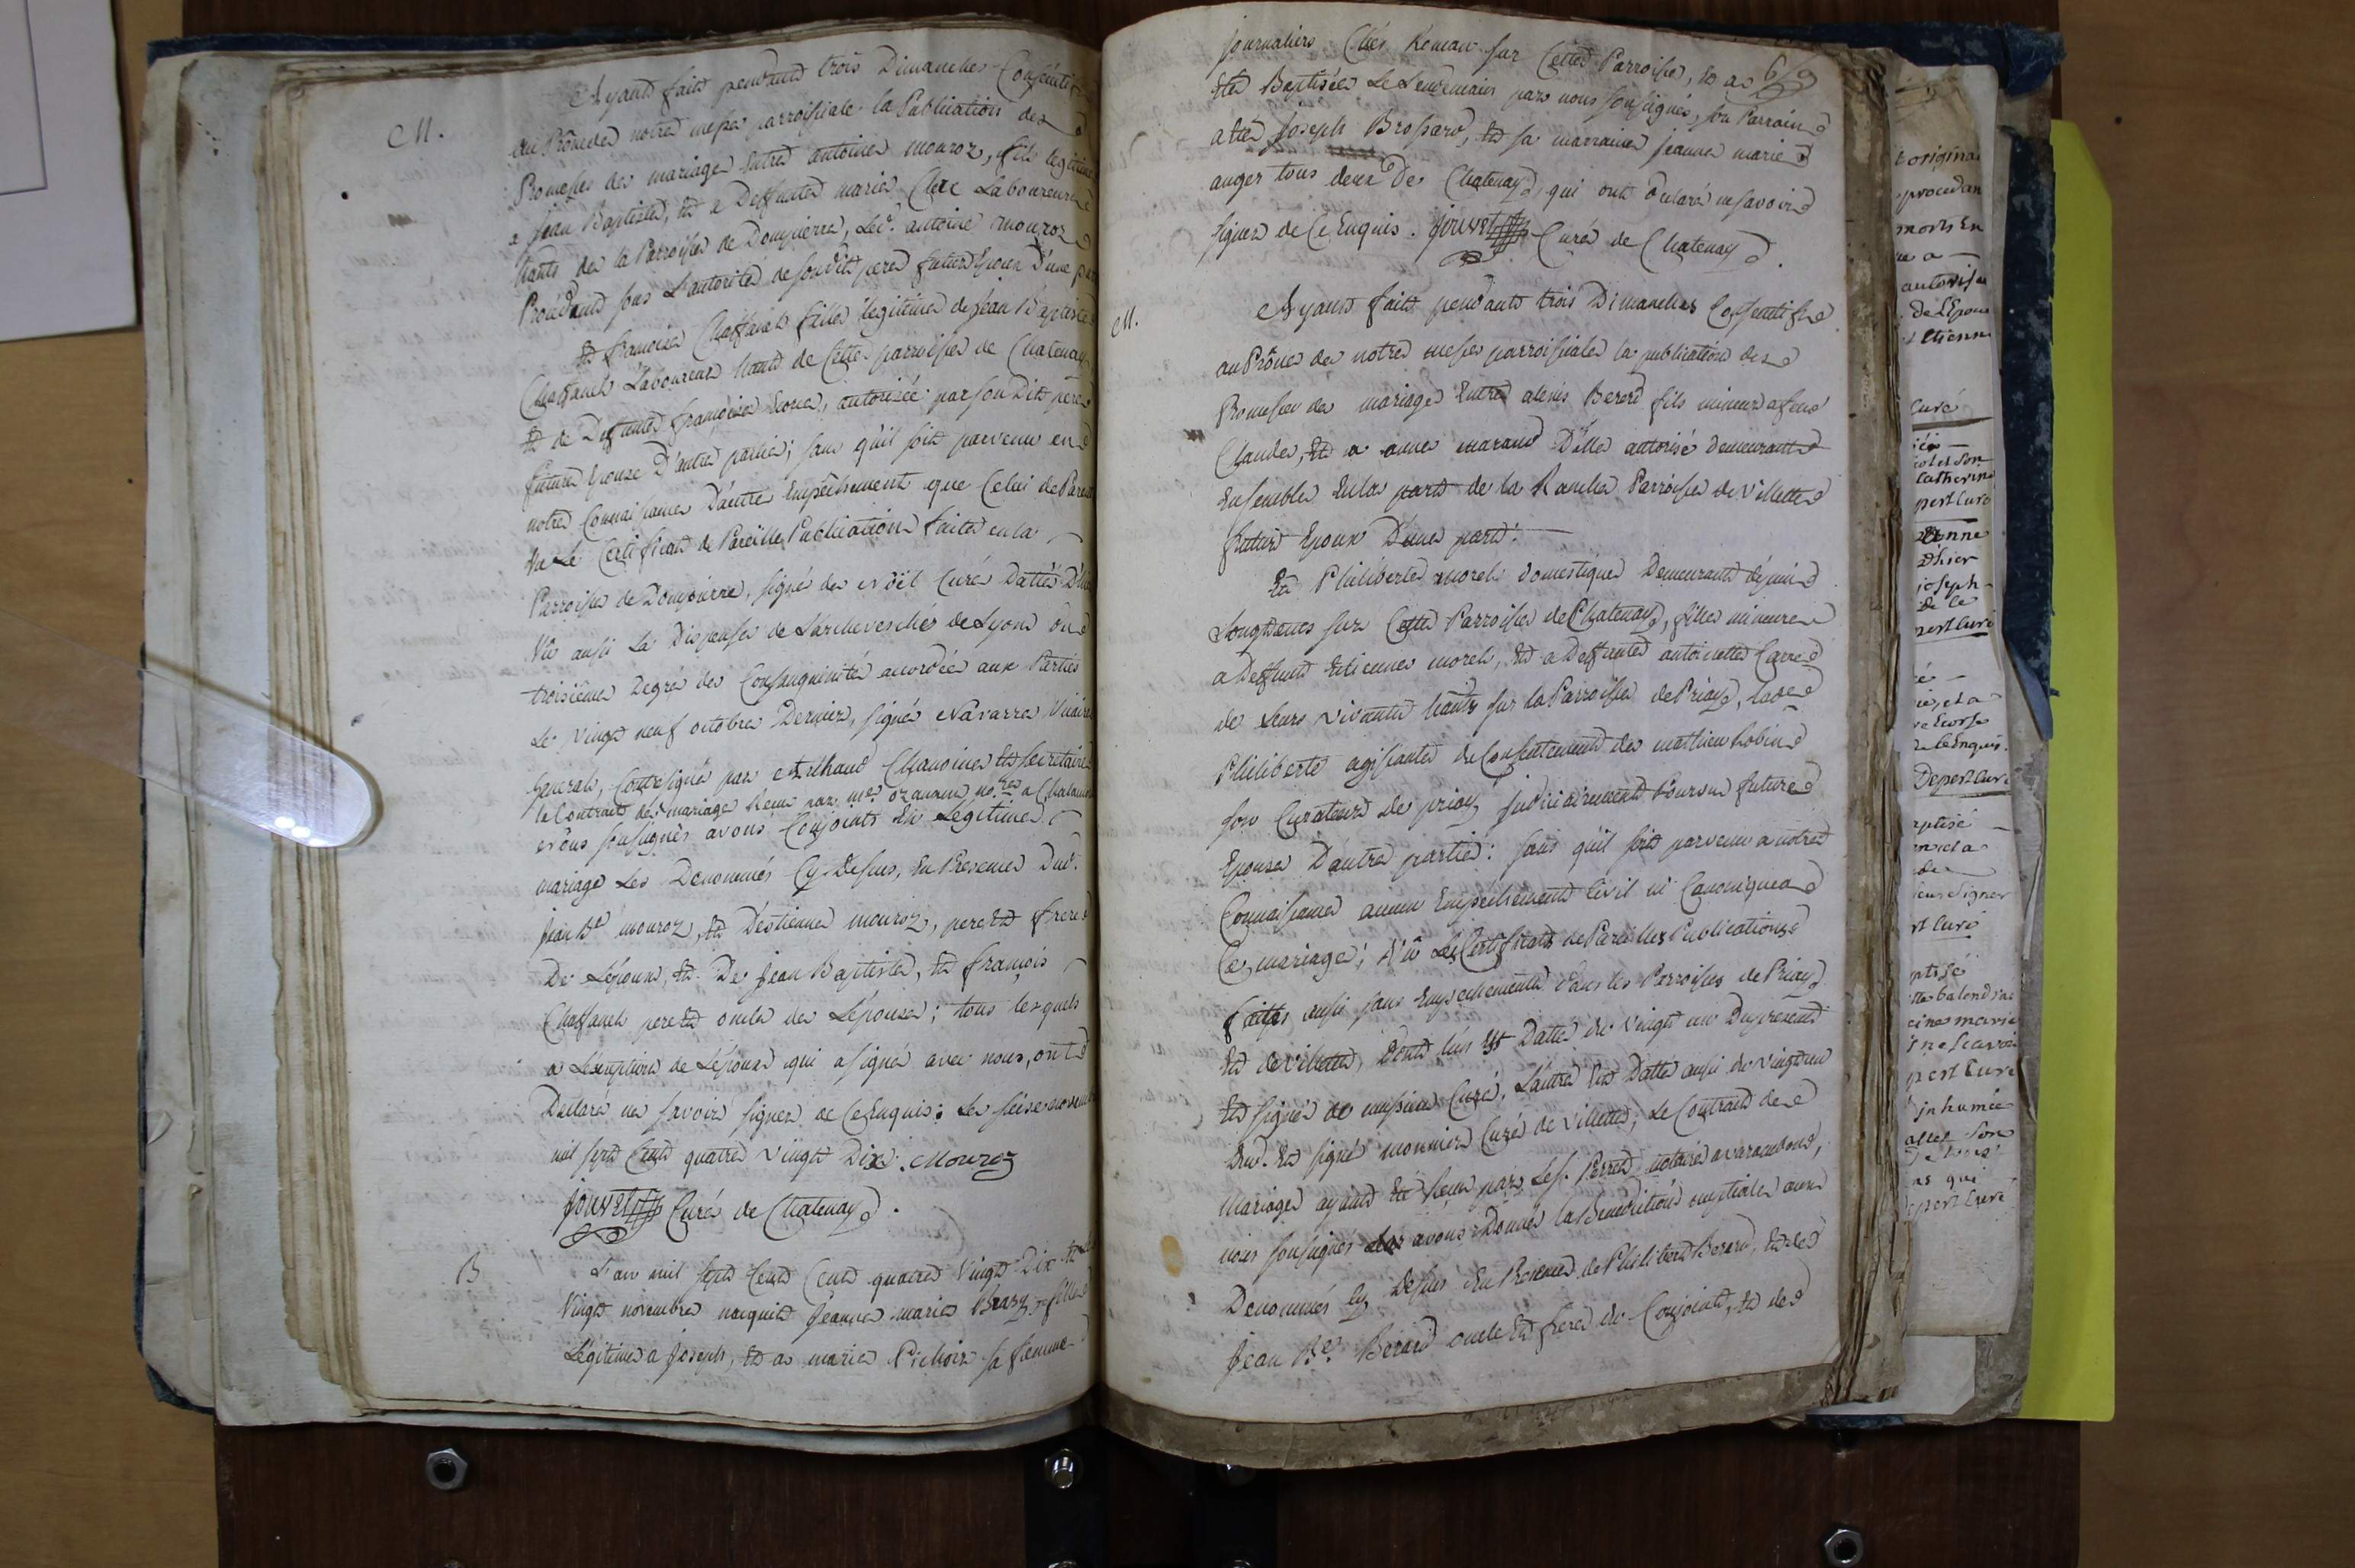 M.
Ayant fait pendant trois Dimanches Consécutifs
au Prône de notre messe parroissiale la Publication des
Promesses de mariage Entre antoine mouroz, fils legitime
a jean Baptiste, et a Deffunte marie Clerc Laboureur
hants de la Parroisse de Dompierre, Led. antoine mouroz
Procédant sous L'autorité de son dit pere futur Epoux d'une part
Et françoise Chaffanel fille légitime de jean Baptiste
Chaffanel Laboureur hant de cette parroisse de Chatenay
et de Deffunte françoise autorisée par son Dit pere
future Epouse D'autre partie; sans qu'il soit parvenu en
notre Connaissance D'autre Empêchement que Celui de Parenté
Vu Le Certificat de Pareille Publication faite en la
Parroisse de Dompierre, signé de Noël Curé Datté D'hier
Vû aussi La Dispense de L'archevesché de Lyon du
troisième Degré de Consanguinité accordée aux Parties
Le vingt neuf octobre Dernier, signé Navarre Vicaire
General, Contresigné par Chanoine et secrétaire
le Contrat de mariage Recu par me. no.re a Chalamont
Nous soussignés avons Conjoints En Légitime
mariage Les Denommés Cy-Dessus, En Presence Dud.
jean Bte mouroz, et D'estienne mouroz, pere et frere
De L'époux, et De jean Baptiste, et françois
Chaffanel pere et oncle de L'épouse; tous lesquels
a L'exception de L'époux qui a signé avec nous, ont
Déclaré ne savoir signer de Ce Enquis; Le seize novembre
mil sept Cent quatre vingt Dix. Mouroz
jouvet Curé de Chatenay.
B
L'an mil sept Cent Cent quatre Vingt Dix et le
Vingt novembre naquit jeanne marie fille
Légitime a joseph, et a marie Pichoir sa femme
journaliers Chés Romean sur Cette Parroisse, et a
été Baptisée Le Lendemain par nous soussignés, son Parrain
a été joseph Brossard, et sa marraine jeanne marie
auger tous deux De Chatenay, qui ont déclaré ne savoir
signer de Ce Enquis. jouvet Curé de Chatenay.
M.
Ayant fait pendant trois Dimanches Consécutifs
au Prône de notre messe parroissiale la publication des
Promesses de mariage Entre alexis Berard fils mineur a feu
Claude, et a anne marand D'elle autorisé demeurants
Ensemble En la part de la Ranche Parroisse de Villette
futur Epoux D'une part.
Et Philiberte morel domestique Demeurant depuis
Longtems sur Cette Parroisse de Chatenay, fille mineure
a Deffunt Etienne morel, et a Deffunte antoinette Carre
de leurs vivants hants sur la Parroisse de Priay, lade
Philiberte agissante du Consentement de mathieu Robin
son Curateur de priay judiciairement Pourvu future
Epouse D'autre partie: sans qu'il soit parvenu a notre
Connaissance aucun Empêchement Civil ni Canonique a
Ce mariage; Vû les Certificats de Pareilles Publications
faites aussi sans Empechements dans les Parroisses de Priay
et de Villette, dont l'un Est Datté du Vingt un Du present
et signé de Curé, L'autre Est Datté aussi du vingt un
Dud. Et signé monnier Curé de Villette; Le Contrat de
mariage ayant Eté Recu par Le s. Perret notaire a varambon,
nous soussignés avons Donné la Bénédiction nuptiale aux
Denommés Cy Dessus En Presence de Philibert Berard, et de
jean Bte. Berard oncle et frere du Conjoint, et de
t origina
procedan
morts En
autorisa
de L'Epoux
Etienne
Curé
et son
Catherine
pert Curé
D'hier
joseph
De Ce
pert Curé
Ce Enquis.
Depert Curé
aptisé
signer
rt Curé
ptisé
marie
ne scavoi
pert Curé
inhumée
son
as qui
pert Curé